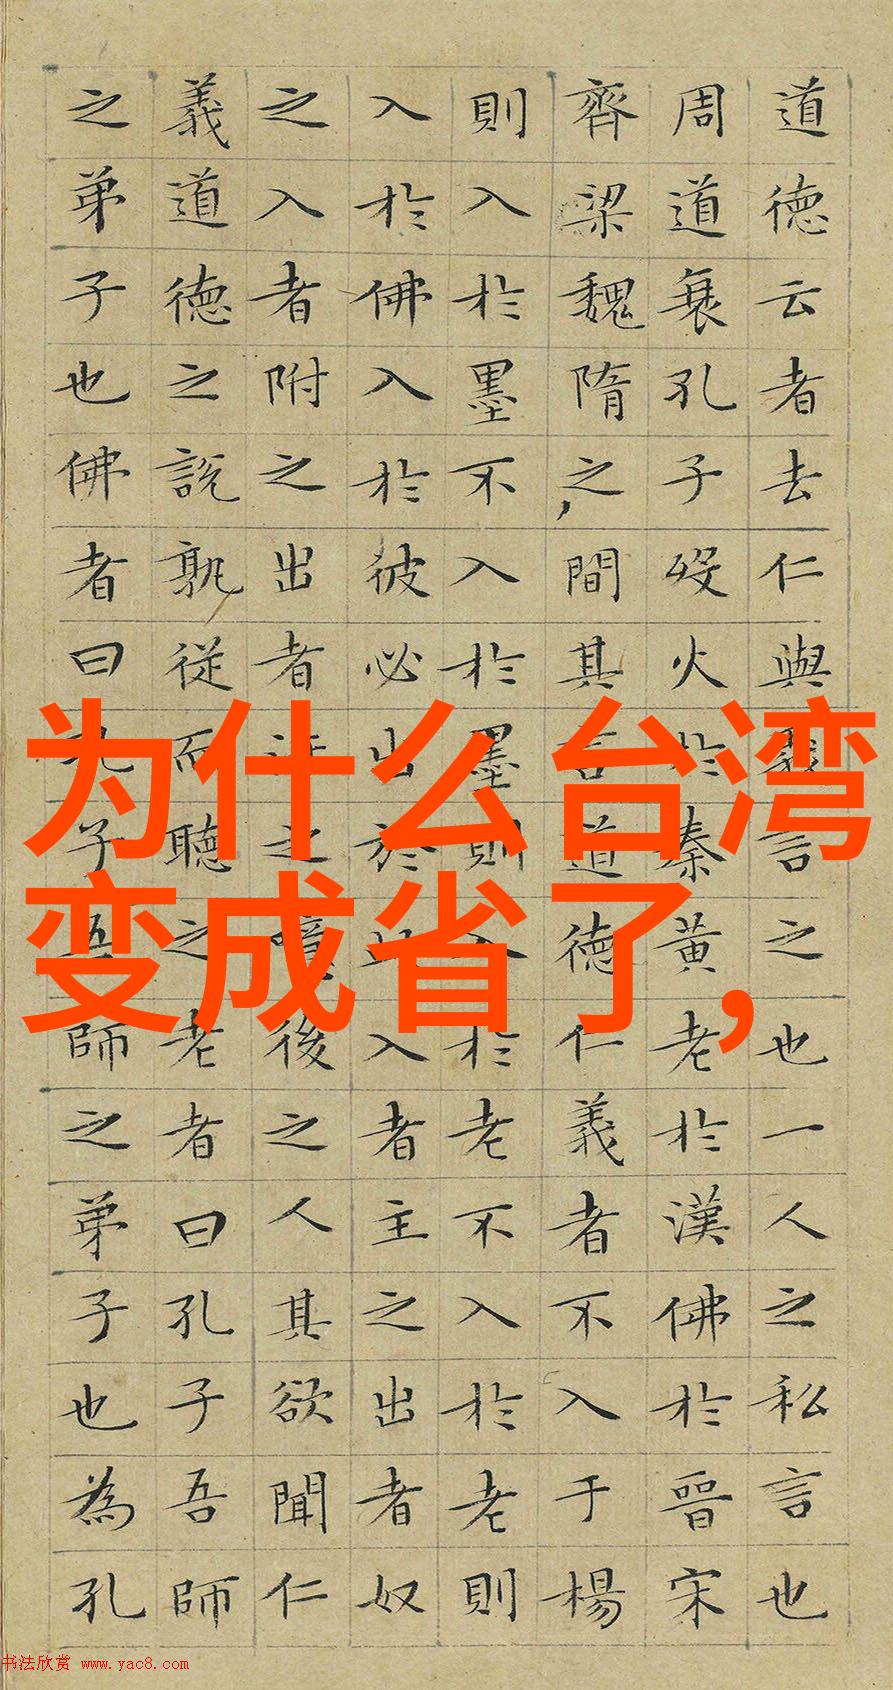 道德云者去仁與義言之也一人之私言也
周道衰孔子歿火於秦黃老於漢佛於晉宋
齊梁魏隋之間其言道德仁義者不入于楊
則入於墨不入於墨則入於老不入於老則
入於佛入於彼必出於此入者主之出者奴
之入者附之出者之後之人其欲聞仁
義道德之說孰從而聽之老者曰孔子吾師
之弟子也佛者曰孔子吾師之弟子也為孔
为什么台湾
变成省了,
书法欣赏 www.yac8.com